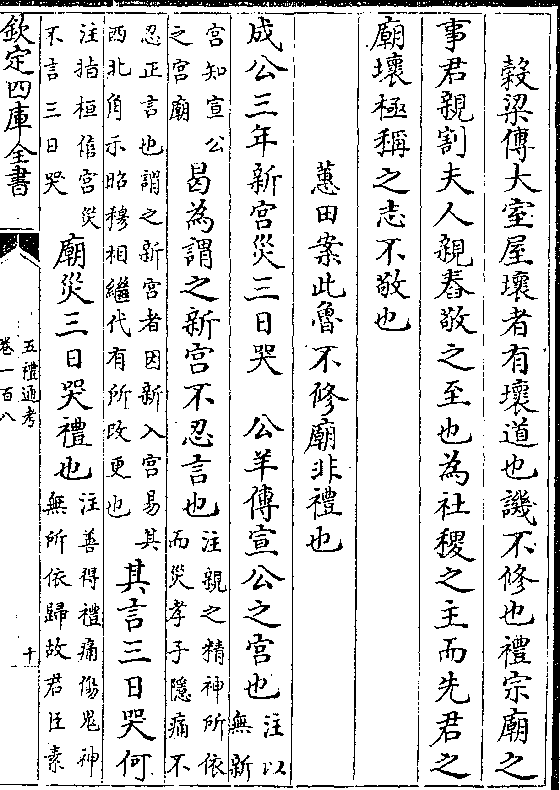 穀梁傳大室屋壞者有壞道也譏不修也禮宗廟之
事君親割夫人親舂敬之至也為社稷之主而先君之
廟壞極稱之志不敬也
蕙田案此魯不修廟非禮也
成公三年新宫災三日哭　公羊傳宣公之宫也
注以
無新
宫知宣公
之宫廟
曷為謂之新宫不忍言也
注親之精神所依
而災孝子隱痛不
忍正言也謂之新宫者因新入宫易其
西北角示昭穆相繼代有所改更也
其言三日哭何
注指桓僖宫災
不言三日哭
廟災三日哭禮也
注善得禮痛傷鬼神
無所依歸故君臣素
欽定四庫全書
五禮通考
卷一百八
十